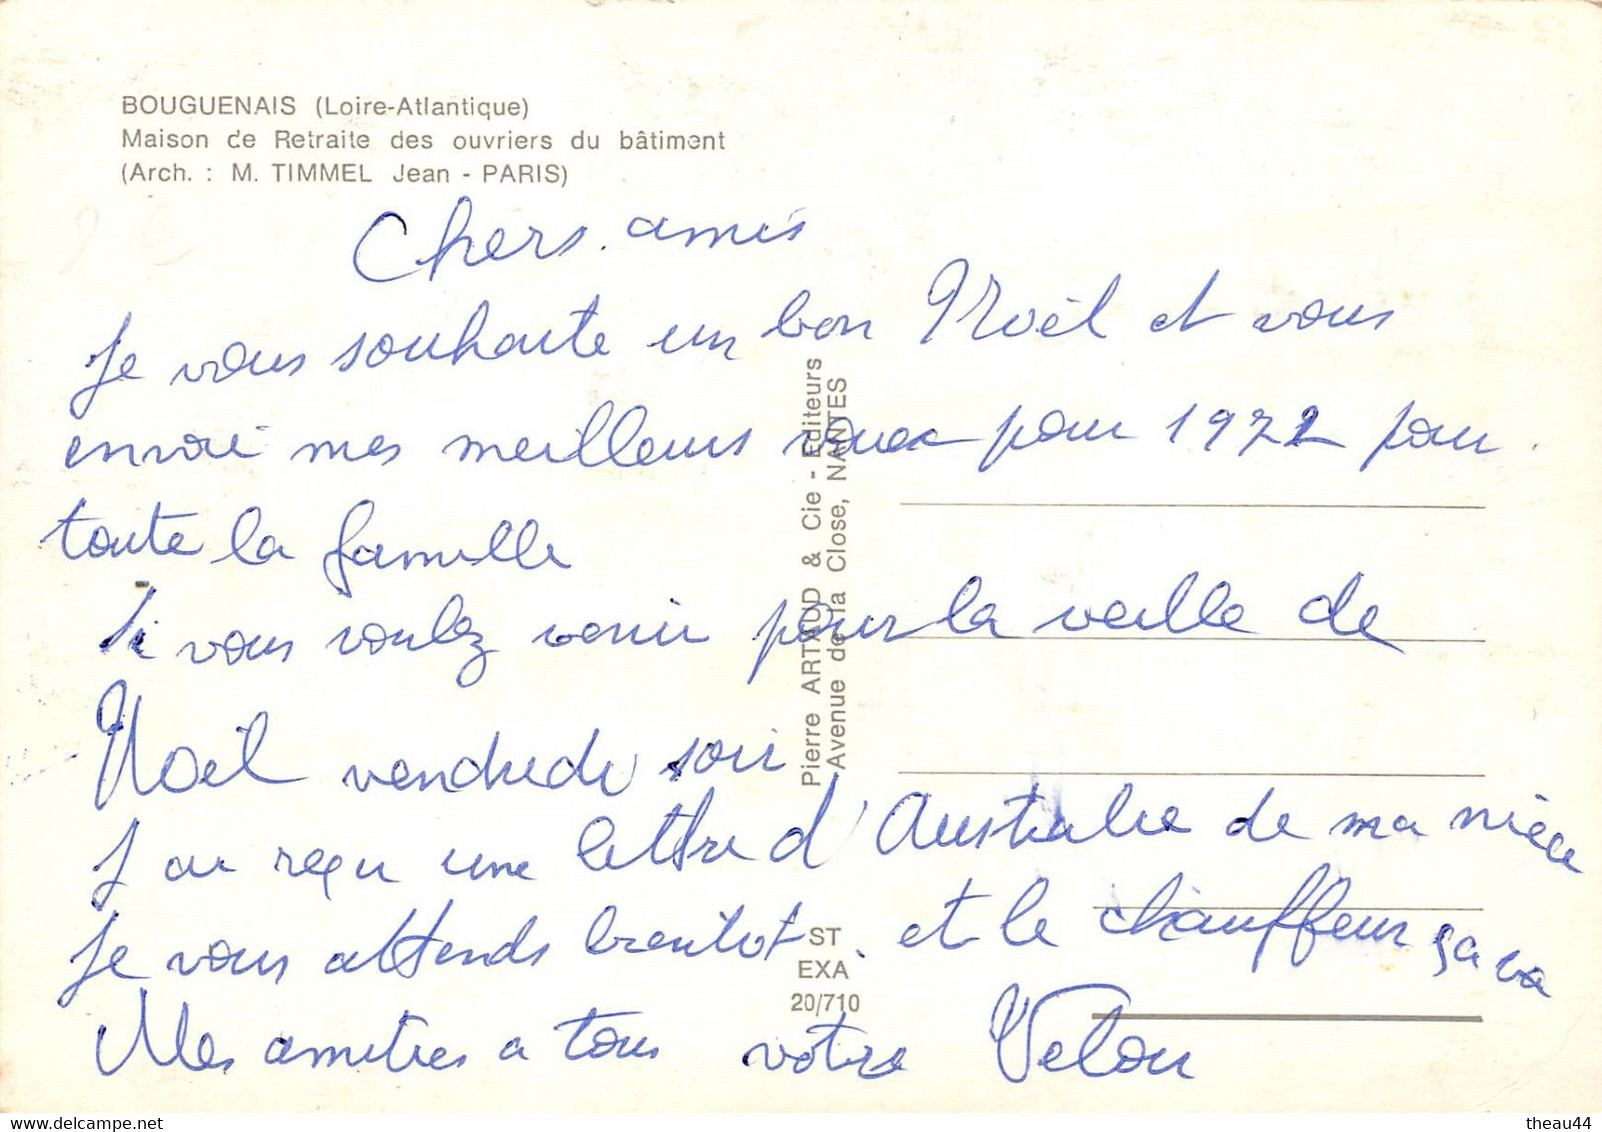 BOUGUENAIS (Loire-Atlantique)
Maison de Retraite des ouvriers du bâtiment
(Arch. : M. TIMMEL Jean - PARIS)
Chers amis
Je vous souhaite un bon Noël et vous
envoie mes meilleurs voeux pour 1972 pour
toute la famille
Si vous voulez venir pour la veille de
Noël vendredi soir
J ai reçu une lettre d'Australie de ma nièce
Je vous attends bientot. et le chauffeur ça va
Mes amitiés a tous votre
Pierre ARTAUD & Cie - Editeurs
Avenue de la Close, NANTES
ST
EXA
20/710
theau44